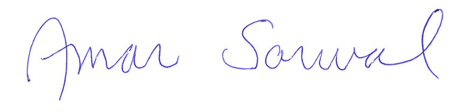 Amar Sarwal